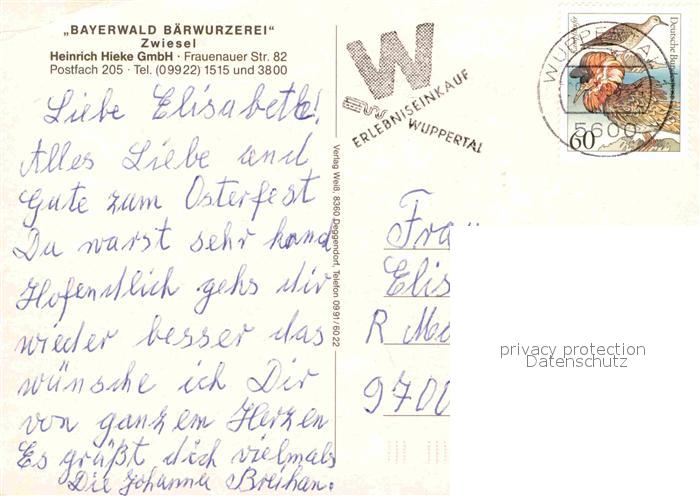 „BAYERWALD BÄRWURZEREI“
Zwiesel
Heinrich Hieke GmbH · Frauenauer Str. 82
Postfach 205 · Tel. (09922) 1515 und 3800
Liebe Elisabeth!
Alles Liebe und
Gute zum Osterfest
Du warst sehr krank
Hofendlich gehs dir
wieder besser das
wünsche ich Dir
von ganzem Herzen
Es grüßt dich vielmals
Die Johanna Breihan.
Verlag Weiß, 8360 Deggendorf, Telefon 0991/6022
W
ERLEBNISEINKAUF
WUPPERTAL
WUPPERTAL
5600
Deutsche Bundespost
60
Frä
Elis
R Mo
9700
privacy protection
Datenschutz